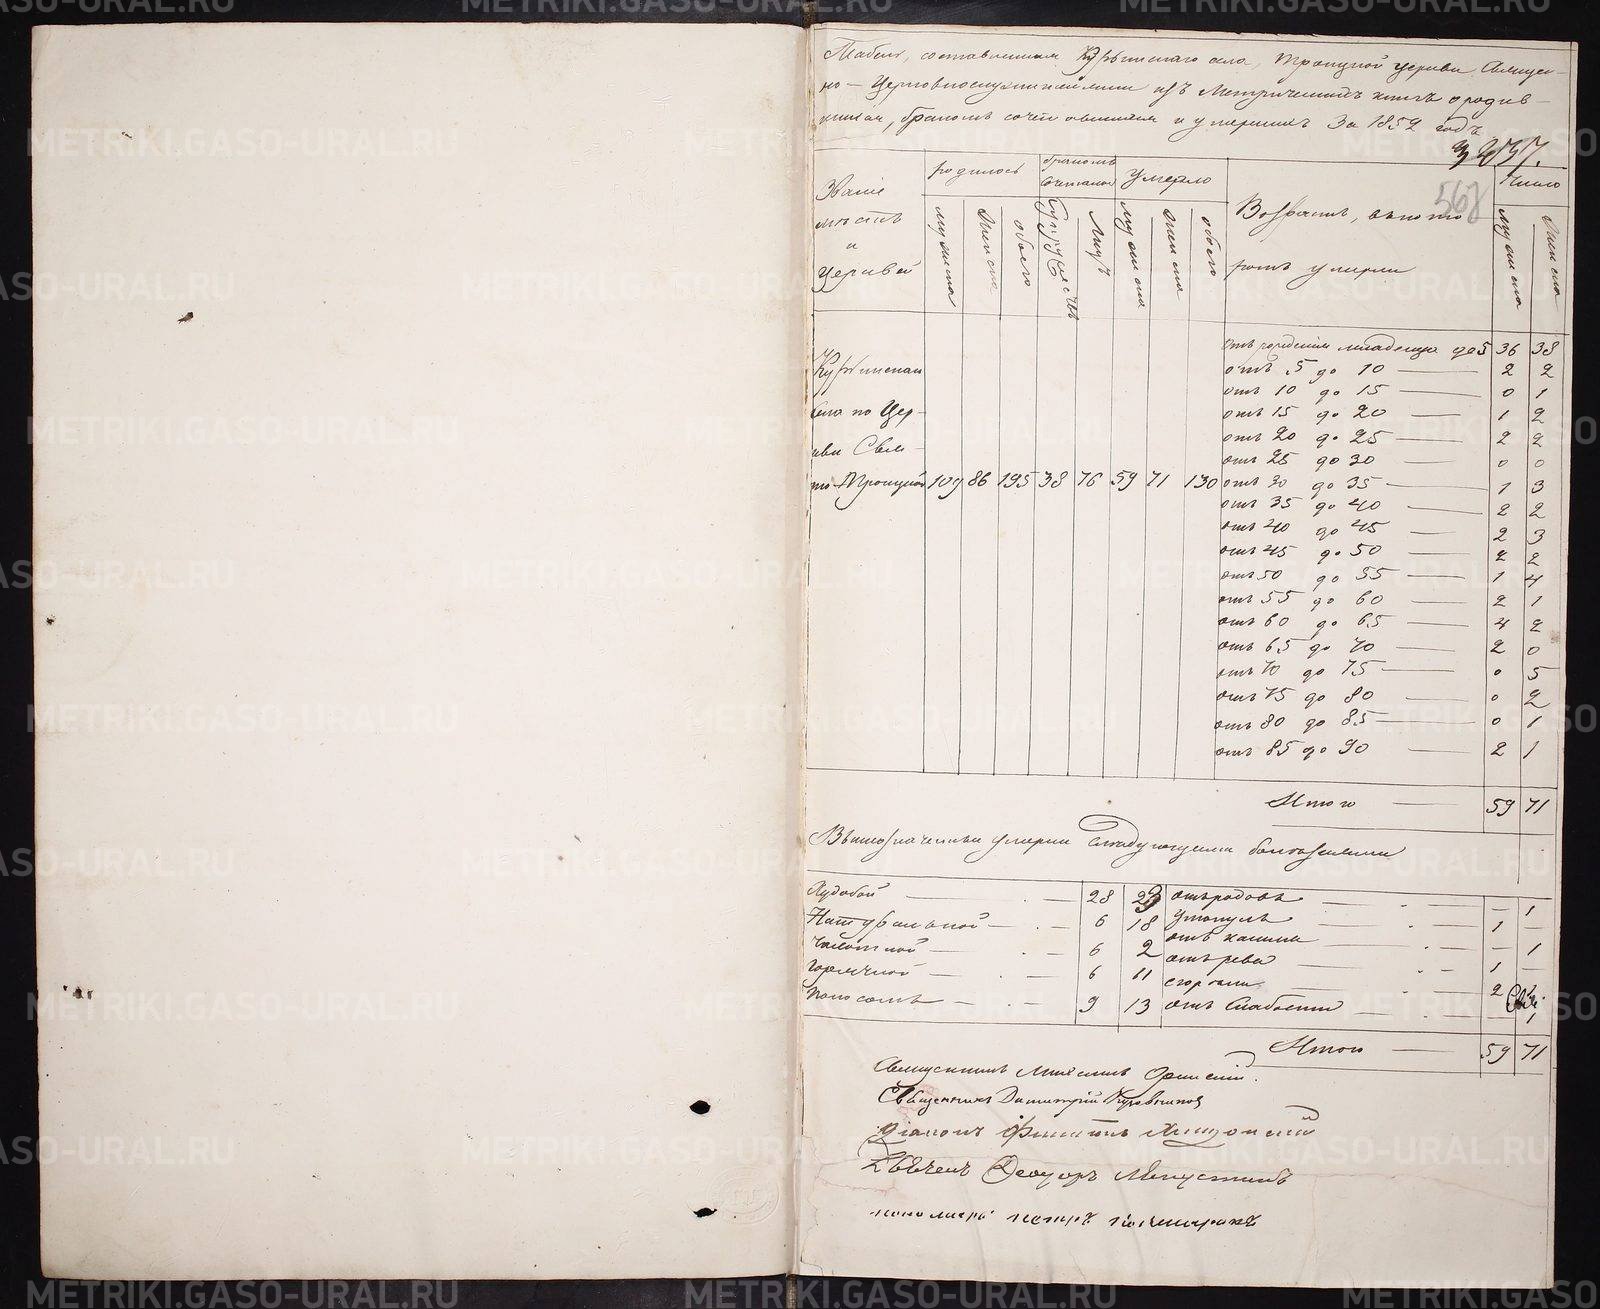 Табель, составленная Курьинскаго села, Троицкой церкви Священ-
но-Церковнослужителями изъ Метрическихъ книгъ о родив-
шихся, бракомъ сочетавшихся и умершихъ За 1852 годъ
568
Званіе мѣстъ и церквей
родилось
бракомъ сочетано
умерло
Возрастъ, въ кото
ромъ умерли
Число
мужеска
женска
обоего
Супружествъ
Лицъ
мужеска
женска
обоего
мужеска
женска
отъ рожденія младенцы до 5 36 38
отъ 5 до 10 — 2 2
отъ 10 до 15 — 0 1
отъ 15 до 20 — 1 2
отъ 20 до 25 — 2 2
отъ 25 до 30 — 0 0
Курьинскаго
села по Цер-
кви Свя-
то-Троицкой 109 86 195 38 76 59 71 130
отъ 30 до 35 — 1 3
отъ 35 до 40 — 2 2
отъ 40 до 45 — 2 3
отъ 45 до 50 — 2 2
отъ 50 до 55 — 1 4
отъ 55 до 60 — 2 1
отъ 60 до 65 — 4 2
отъ 65 до 70 — 2 0
отъ 70 до 75 — 0 5
отъ 75 до 80 — 0 2
отъ 80 до 85 — 0 1
отъ 85 до 90 — 2 1
Итого — 59 71
Вышеозначенныи умерли следующими болезнями
Худобой — 28 23 отъ родовъ — — 1
Натуральной — 6 18 утонулъ — 1 —
Чахоткой — 6 2 отъ — — 1
горячкой — 6 11 отъ — 1 —
поносомъ — 9 13 сгорели 2
отъ Слабости — 1
Итого — 59 71
Священникъ
Священникъ Димитрій
Діаконъ
Ѳеодоръ
пономарь петръ
METRIKI.GASO-URAL.RU